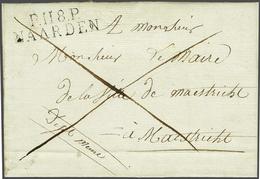 P.118.P.
NAARDEN
A Monsieur
Monsieur Le Maire
de la Ville de Maestricht
à Maestricht